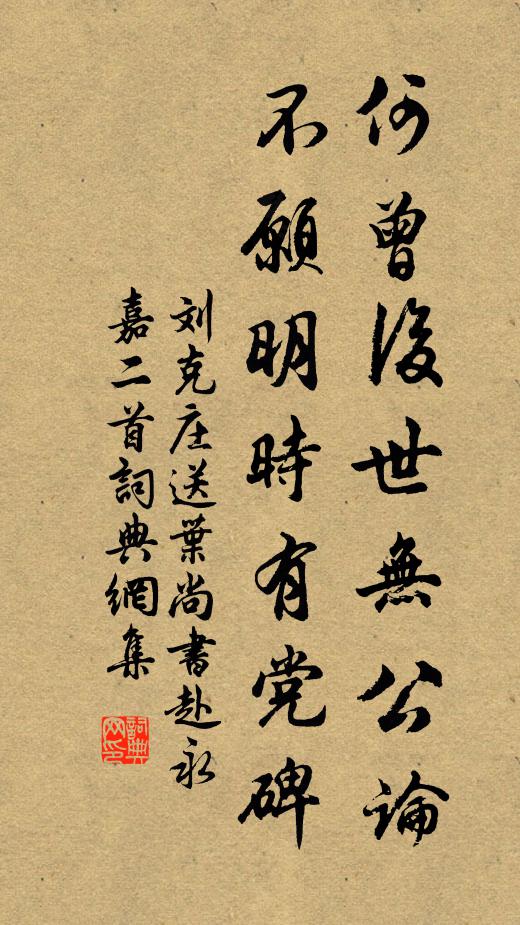 何曾後世無公論
不願明時有党碑
刘克庄送葉尚書赴永
嘉二首詞典網集
詞典
网印